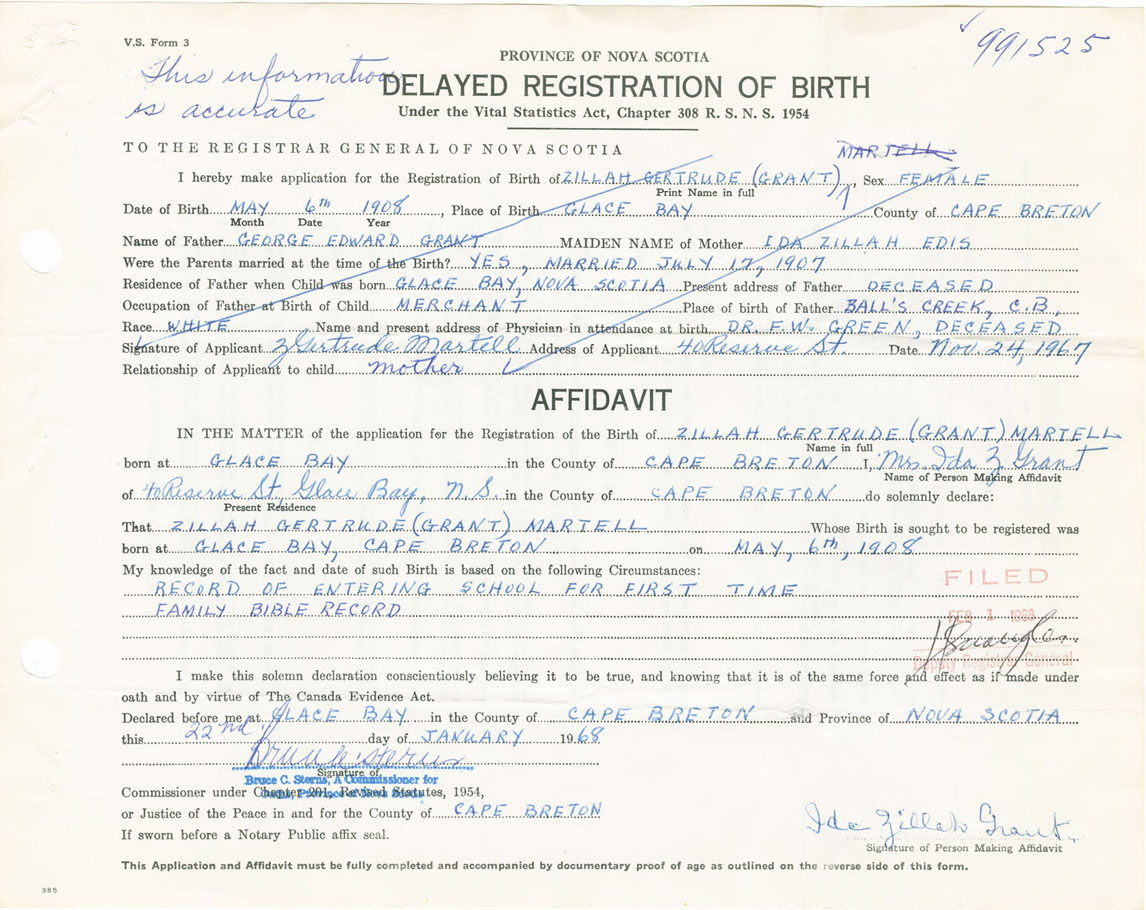 V.S. Form 3
991525
PROVINCE OF NOVA SCOTIA
This information
is accurate
DELAYED REGISTRATION OF BIRTH
Under the Vital Statistics Act, Chapter 308 R. S. N. S. 1954
TO THE REGISTRAR GENERAL OF NOVA SCOTIA
MARTELL
I hereby make application for the Registration of Birth of ZILLAH GERTRUDE (GRANT), Sex FEMALE
Print Name in full
Date of Birth MAY 6th 1908, Place of Birth GLACE BAY County of CAPE BRETON
Month Date Year
Name of Father GEORGE EDWARD GRANT MAIDEN NAME of Mother IDA ZILLAH EDIS
Were the Parents married at the time of the Birth? YES, MARRIED JULY 17, 1907
Residence of Father when Child was born GLACE BAY, NOVA SCOTIA Present address of Father DECEASED
Occupation of Father at Birth of Child MERCHANT Place of birth of Father BALL'S CREEK, C.B.
Race WHITE Name and present address of Physician in attendance at birth DR. F.W. GREEN, DECEASED
Signature of Applicant Z Gertrude Martell Address of Applicant 40 Reserve St. Date Nov. 24, 1967
Relationship of Applicant to child mother
AFFIDAVIT
IN THE MATTER of the application for the Registration of the Birth of ZILLAH GERTRUDE (GRANT) MARTELL
Name in full
born at GLACE BAY in the County of CAPE BRETON I, Mrs. Ida Z Grant
Name of Person Making Affidavit
of 40 Reserve St, Glace Bay, N.S. in the County of CAPE BRETON do solemnly declare:
Present Residence
That ZILLAH GERTRUDE (GRANT) MARTELL Whose Birth is sought to be registered was
born at GLACE BAY, CAPE BRETON on MAY, 6th, 1908
My knowledge of the fact and date of such Birth is based on the following Circumstances:
FILED
RECORD OF ENTERING SCHOOL FOR FIRST TIME
FAMILY BIBLE RECORD
FEB 1 1968
Deputy Registrar General
I make this solemn declaration conscientiously believing it to be true, and knowing that it is of the same force and effect as if made under
oath and by virtue of The Canada Evidence Act.
Declared before me at GLACE BAY in the County of CAPE BRETON and Province of NOVA SCOTIA
this 22nd day of JANUARY 1968
Signature of
Bruce C. Sterns, A Commissioner for
Commissioner under Chapter 201, Revised Statutes, 1954,
or Justice of the Peace in and for the County of CAPE BRETON
If sworn before a Notary Public affix seal.
Ida Zillah Grant
Signature of Person Making Affidavit
This Application and Affidavit must be fully completed and accompanied by documentary proof of age as outlined on the reverse side of this form.
385